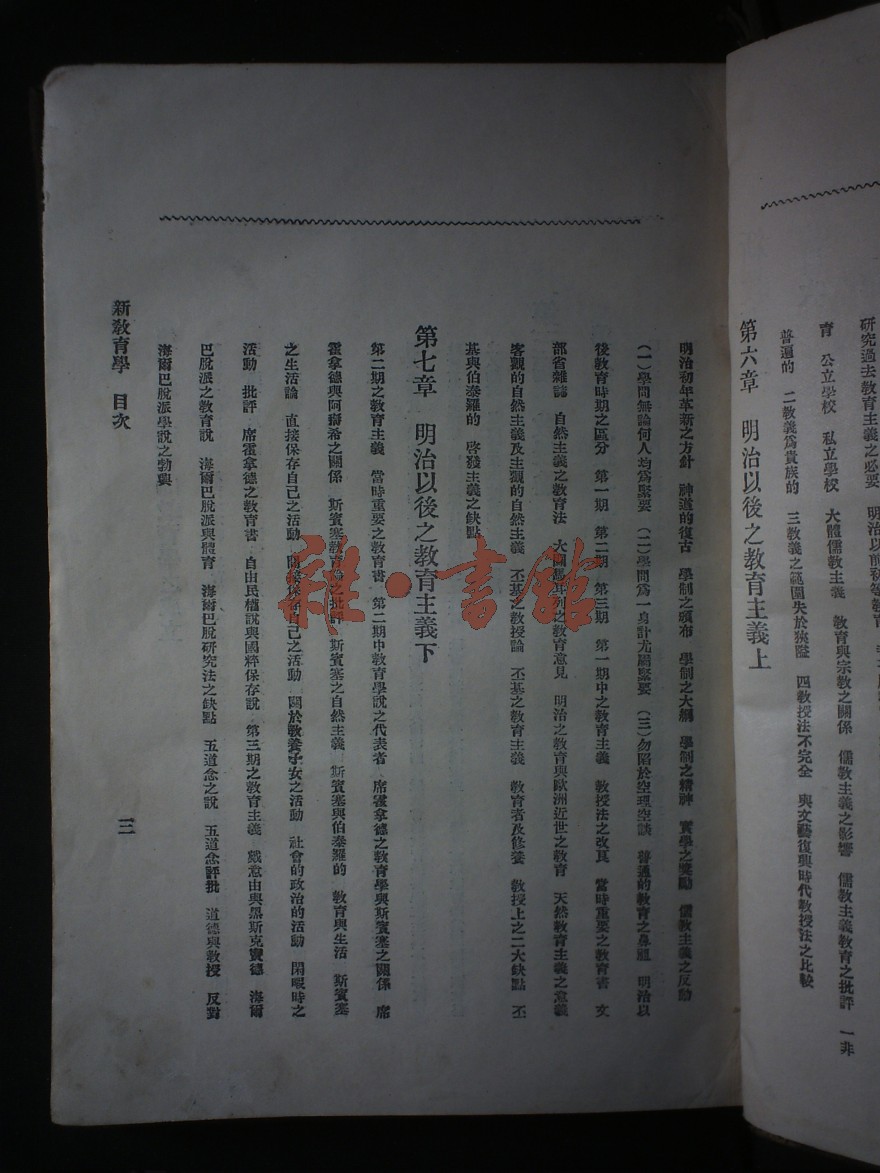 研究過去教育主義之必要 明治以前
育 公立學校 私立學校 大體儒教主義 教育與宗教之關係 儒教主義之影響 儒教主義教育之批評 一非
普遍的 二教義爲貴族的 三教義之範圍失於狹隘 四教授法不完全 與文藝復興時代教授法之比較
第六章 明治以後之教育主義上
明治初年革新之方針 神道的復古 學制之頒布 學制之大綱 學制之精神 實學之獎勵 儒教主義之反動
(一)學問無論何人均爲緊要 (二)學問爲一身計尤屬緊要 (三)勿陷於空理空談 普通的教育之鼻祖 明治以
後教育時期之區分 第一期 第二期 第三期 第一期中之教育主義 教授法之改良 當時重要之教育書 文
部省雜誌 自然主義之教育法 大國 年列之教育意見 明治之教育與歐洲近世之教育 天然教育主義之意義
客觀的自然主義及主觀的自然主義 丕基之教授論 丕基之教育主義 教育者及修養 教授上之二大缺點 丕
基與伯泰羅的 啓發主義之缺點
第七章 明治以後之教育主義下
第二期之教育主義 當時重要之教育書 第二期中教育學說之代表者 席霍拿德之教育學與斯賓塞之關係 席
霍拿德與阿爾希之關係 斯賓塞教育論之批評 斯賓塞之自然主義 斯賓塞與伯泰羅的 教育與生活 斯賓塞
之生活論 直接保存自己之活動 間接保存自己之活動 關於教養子女之活動 社會的政治的活動 閑暇時之
活動 批評 席霍拿德之教育書 自由民權說與國粹保存說 第三期之教育主義 戲意由與黑斯克寶德 海爾
巴脫派之教育說 海爾巴脫派與體育 海爾巴脫研究法之缺點 五道念之說 五道念評批 道德與教授 反對
海爾巴脫派學說之勃興
新教育學 目次
三
雜·書館